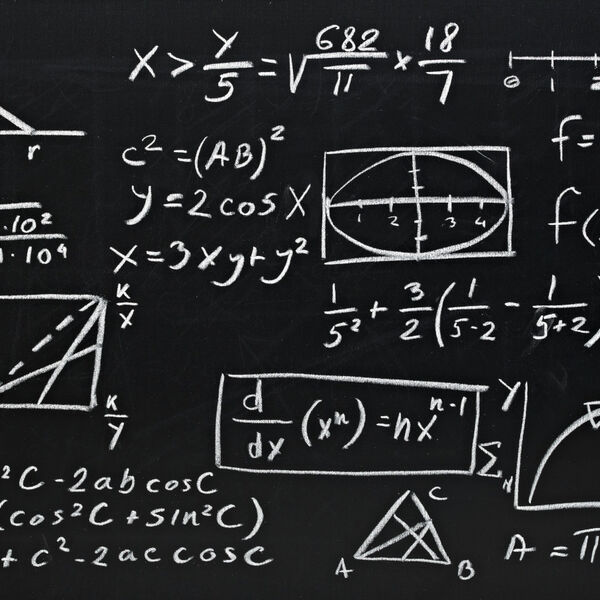 X > Y/5 = √(682/11) × 18/7
0 1
r
c² = (AB)²
f =
y = 2 cos X
1 2 3 4
f(
·10²
1·10⁴
x = 3xy + y²
K/X
1/5² + 3/2 (1/5-2 - 1/5+2)
K/Y
d/dx (xⁿ) = nxⁿ⁻¹
Y
Σ N
²C - 2ab cos C
(cos²C + sin²C)
+ c² - 2ac cos C
C
A B
A = π